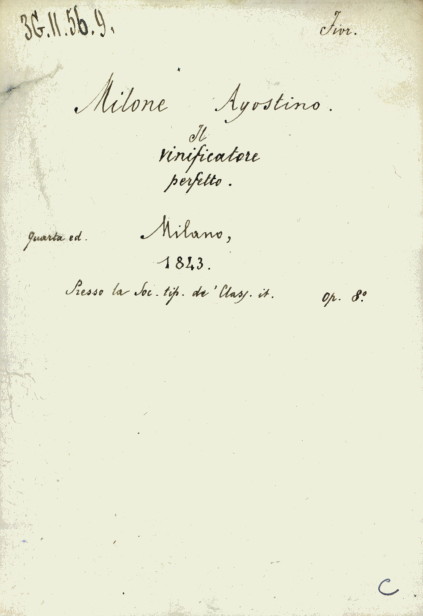 3G.II.56.9.
Milone Agostino.
Il
vinificatore
perfetto.
quarta ed. Milano,
1843.
Presso la Soc. tip. de' Class. it. op. 8º
C